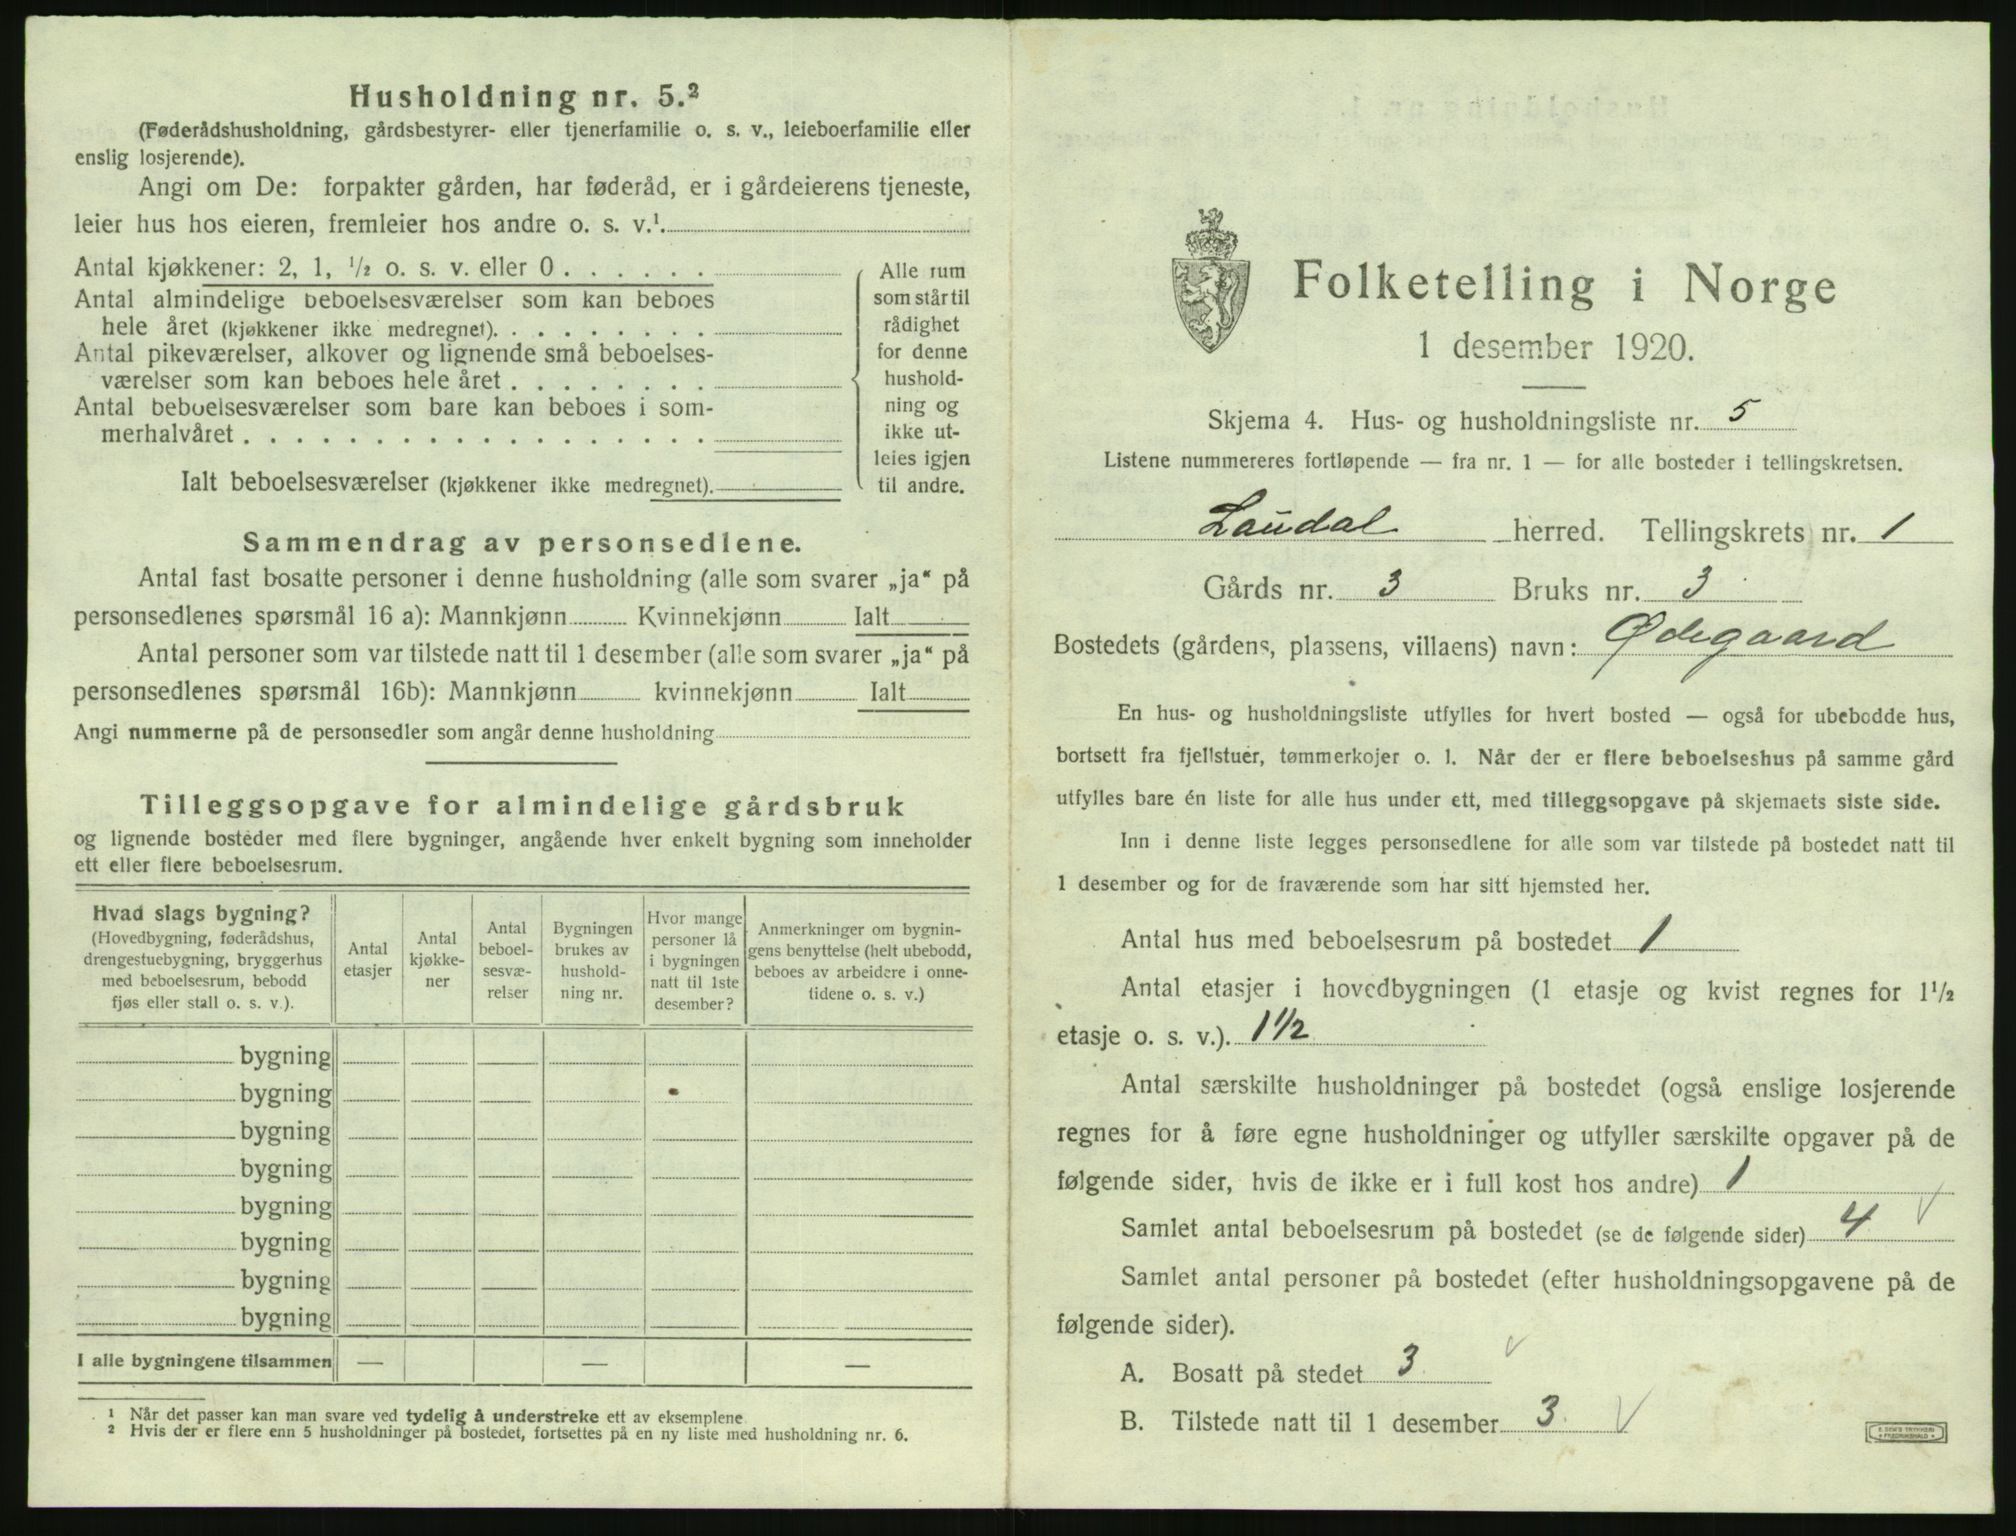 Husholdning nr. 5.²
(Føderådshusholdning, gårdsbestyrer- eller tjenerfamilie o. s. v., leieboerfamilie eller
enslig losjerende).
Angi om De: forpakter gården, har føderåd, er i gårdeierens tjeneste,
leier hus hos eieren, fremleier hos andre o. s. v.¹
Antal kjøkkener: 2, 1, ½ o. s. v. eller 0 . . . . . .
Antal almindelige beboelsesværelser som kan beboes
hele året (kjøkkener ikke medregnet). . . . . . . . .
Antal pikeværelser, alkover og lignende små beboelses-
værelser som kan beboes hele året . . . . . . . .
Antal beboelsesværelser som bare kan beboes i som-
merhalvåret . . . . . . . . . . . . . . . . . .
Ialt beboelsesværelser (kjøkkener ikke medregnet).
Alle rum
som står til
rådighet
for denne
hushold-
ning og
ikke ut-
leies igjen
til andre.
Sammendrag av personsedlene.
Antal fast bosatte personer i denne husholdning (alle som svarer „ja“ på
personsedlenes spørsmål 16 a): Mannkjønn Kvinnekjønn Ialt
Antal personer som var tilstede natt til 1 desember (alle som svarer „ja“ på
personsedlenes spørsmål 16b): Mannkjønn kvinnekjønn Ialt
Angi nummerne på de personsedler som angår denne husholdning
Tilleggsopgave for almindelige gårdsbruk
og lignende bosteder med flere bygninger, angående hver enkelt bygning som inneholder
ett eller flere beboelsesrum.
Hvad slags bygning?
(Hovedbygning, føderådshus,
drengestuebygning, bryggerhus
med beboelsesrum, bebodd
fjøs eller stall o. s. v.).
Antal
etasjer
Antal
kjøkke-
ner
Antal
beboel-
sesvæ-
relser
Bygningen
brukes av
hushold-
ning nr.
Hvor mange
personer lå
i bygningen
natt til 1ste
desember?
Anmerkninger om bygnin-
gens benyttelse (helt ubebodd,
beboes av arbeidere i onne-
tidene o. s. v.)
bygning
bygning
bygning
bygning
bygning
bygning
bygning
bygning
I alle bygningene tilsammen — — —
¹ Når det passer kan man svare ved tydelig å understreke ett av eksemplene
² Hvis der er flere enn 5 husholdninger på bostedet, fortsettes på en ny liste med husholdning nr. 6.
Folketelling i Norge
1 desember 1920.
Skjema 4. Hus- og husholdningsliste nr. 5
Listene nummereres fortløpende — fra nr. 1 — for alle bosteder i tellingskretsen.
Laudal herred. Tellingskrets nr. 1
Gårds nr. 3 Bruks nr. 3
Bostedets (gårdens, plassens, villaens) navn: Ødegaard
En hus- og husholdningsliste utfylles for hvert bosted — også for ubebodde hus,
bortsett fra fjellstuer, tømmerkojer o. l. Når der er flere beboelseshus på samme gård
utfylles bare én liste for alle hus under ett, med tilleggsopgave på skjemaets siste side.
Inn i denne liste legges personsedlene for alle som var tilstede på bostedet natt til
1 desember og for de fraværende som har sitt hjemsted her.
Antal hus med beboelsesrum på bostedet 1
Antal etasjer i hovedbygningen (1 etasje og kvist regnes for 1½
etasje o. s. v.). 1½
Antal særskilte husholdninger på bostedet (også enslige losjerende
regnes for å føre egne husholdninger og utfyller særskilte opgaver på de
følgende sider, hvis de ikke er i full kost hos andre) 1
Samlet antal beboelsesrum på bostedet (se de følgende sider) 4 √
Samlet antal personer på bostedet (efter husholdningsopgavene på de
følgende sider).
A. Bosatt på stedet 3 √
B. Tilstede natt til 1 desember 3 √